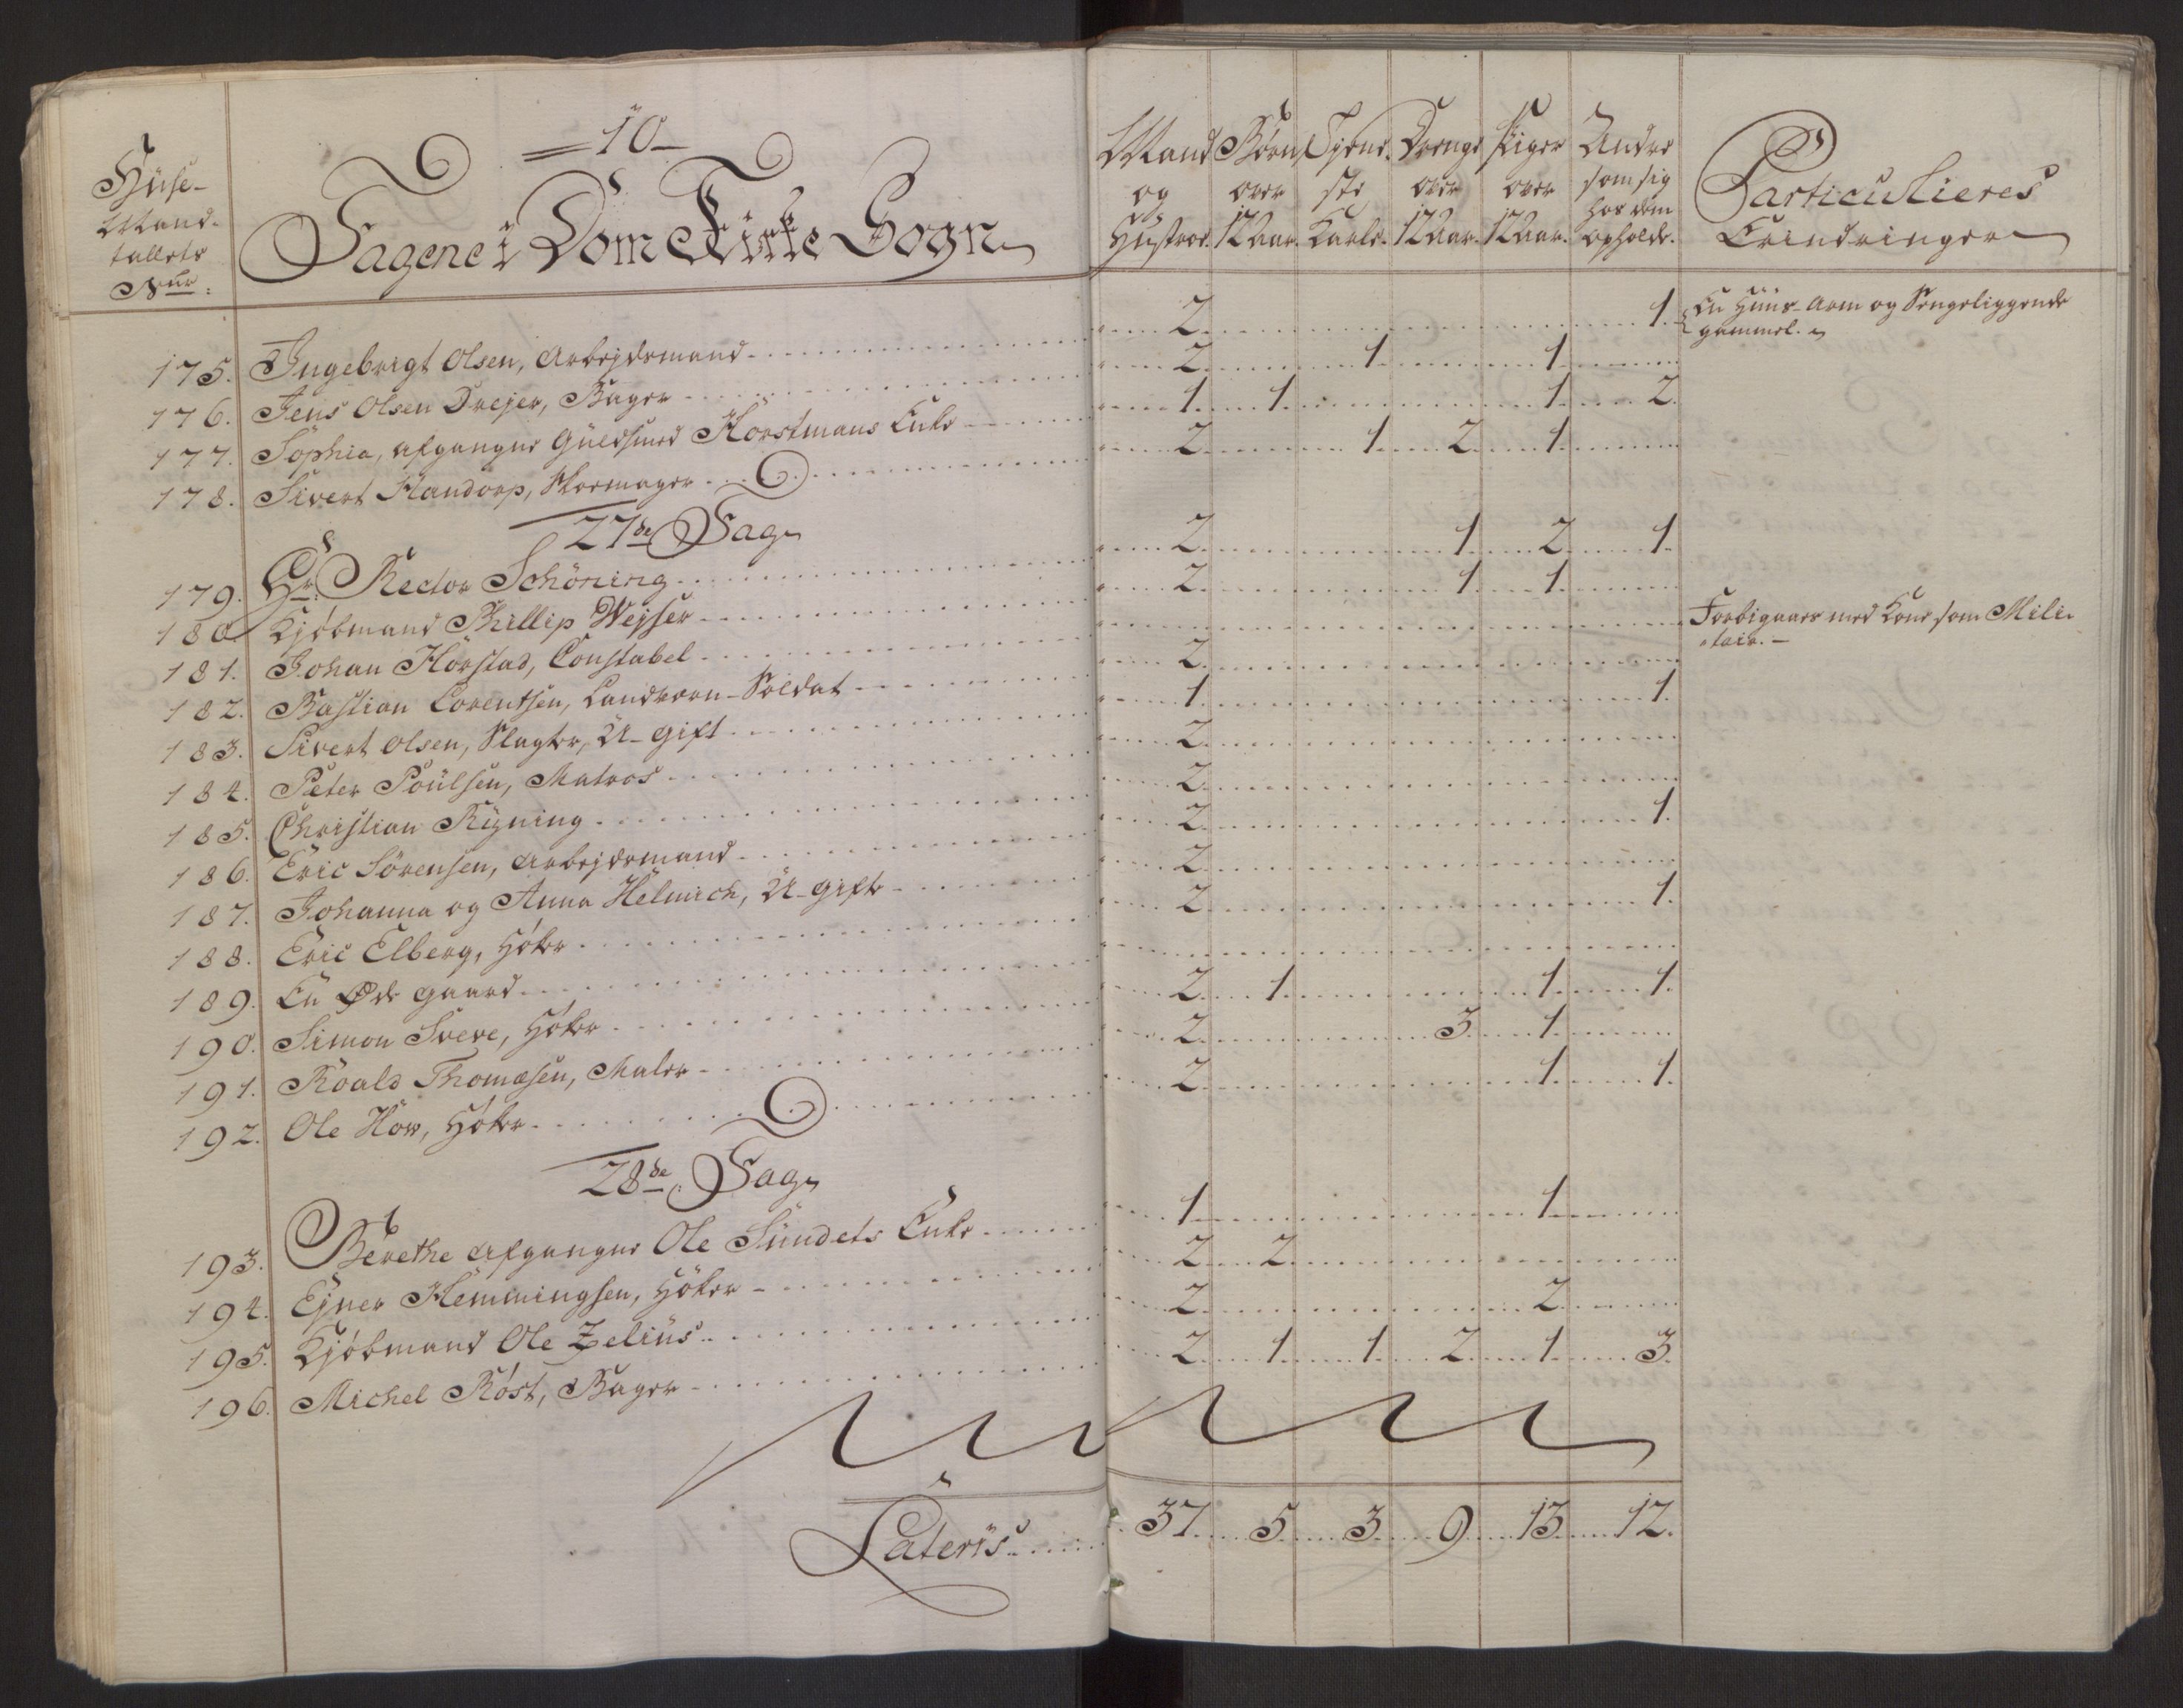 =10=
Huse-
Mand-
tallets
Nur:
Tagene i Dom Kirke Sogn
Mand og Hustroe.
Børn over 12 Aar.
Tjeneste Karle.
Drenge over 12 Aar.
Piger over 12 Aar.
Andre som sig hos dem opholde.
Particulieres Erindringer
175. Ingebrigt Olsen, Arbejdsmand 2 1. En Huus-Arm og Sengeliggende
gammel.
176. Jens Olsen Drejer, Bager 2 1 1
177. Sophia, afgangne Guldsmed Horstmans Enke 1 1 1 2.
178. Sivert Handorp, Skoemager 2 1 2 1
27de Tag
179. Hr. Rector Schöning 2 1 2 1.
180 Kjøbmand Phillip Wejser 2 1 1
181. Johan Hörstad, Constabel Forbigaaes med Kone som Mili-
tair.
182. Bastian Lorentsen, Landværn-Soldat 2
183. Sivert Olsen, Slagter, U-gift 1 1.
184. Peter Poulsen, Matros 2
185. Christian Rÿning 2
186. Eric Sörensen, Arbejdsmand 2 1.
187. Johanna og Anna Helmich, U-gifte 2
188. Eric Elberg, Høker 2 1.
189. En Øde gaard
190. Simon Sveve, Høker 2 1 1 1.
191. Roald Thomæsen, Maler 2 3 1
192. Ole How, Høker 2 1 1.
28de Tag
193. Berethe afgangne Ole Sundets Enke 1 1
194. Ejner Hemmingsen, Høker 2 2
195. Kjøbmand Ole Zelius 2 2
196. Michel Röst, Bager 2 1 1 2 1 3.
Lateris 37 5 3 9 13 12.